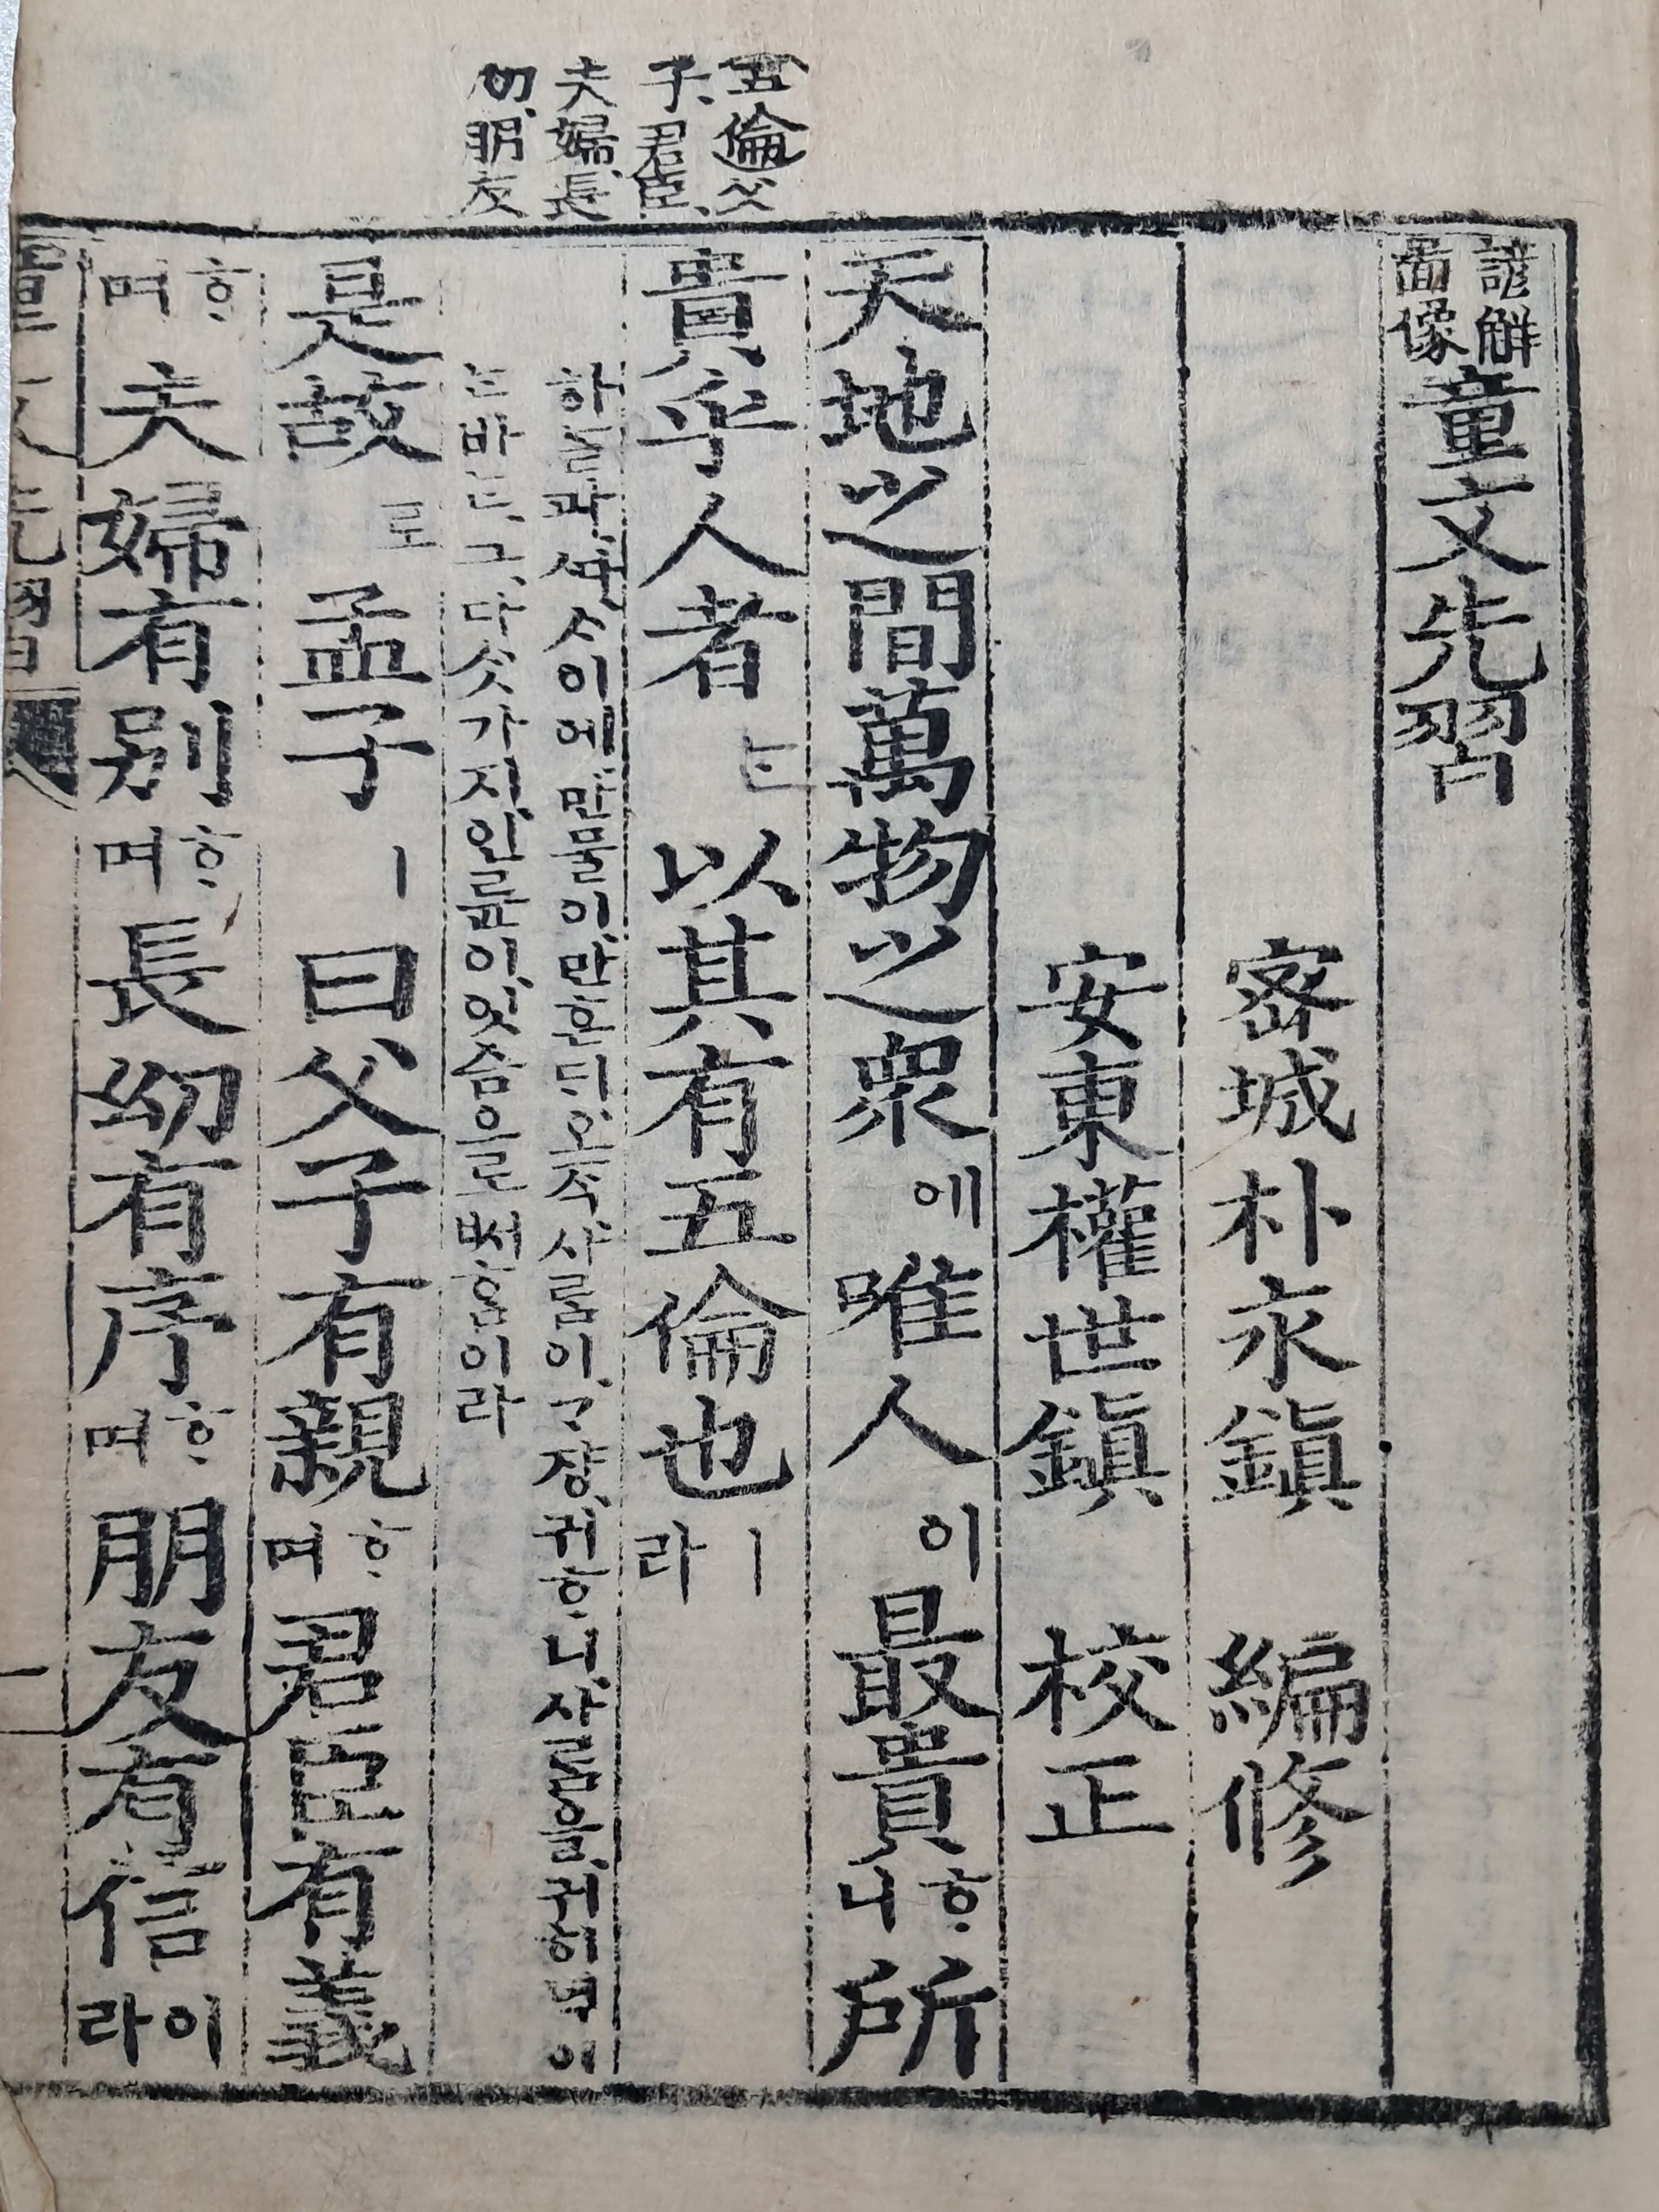 五倫父
子、君臣、
夫婦、長
幼、朋友
諺解
圖像
童文先習
密城朴永鎭 編修
安東權世鎭 校正
天地之間萬物之衆에唯人이最貴ᄒᆞ니所
貴乎人者ᄂᆞᆫ以其有五倫也ㅣ라
하ᄂᆞᆯ과、ᄯᅡᆼ、ᄉᆞ이에、만물이、만흔ᄃᆡ、오즉、사ᄅᆞᆷ이、ᄀᆞ쟝、귀ᄒᆞ니、사ᄅᆞᆷ을、귀히녁이
ᄂᆞᆫ바ᄂᆞᆫ、그、다ᄉᆞᆺ、가지、인륜이、잇슴으로ᄡᅥ홈이라
是故로孟子ㅣ曰父子有親ᄒᆞ며君臣有義
ᄒᆞ며夫婦有別ᄒᆞ며長幼有序ᄒᆞ며朋友有信이라
童文先習
一